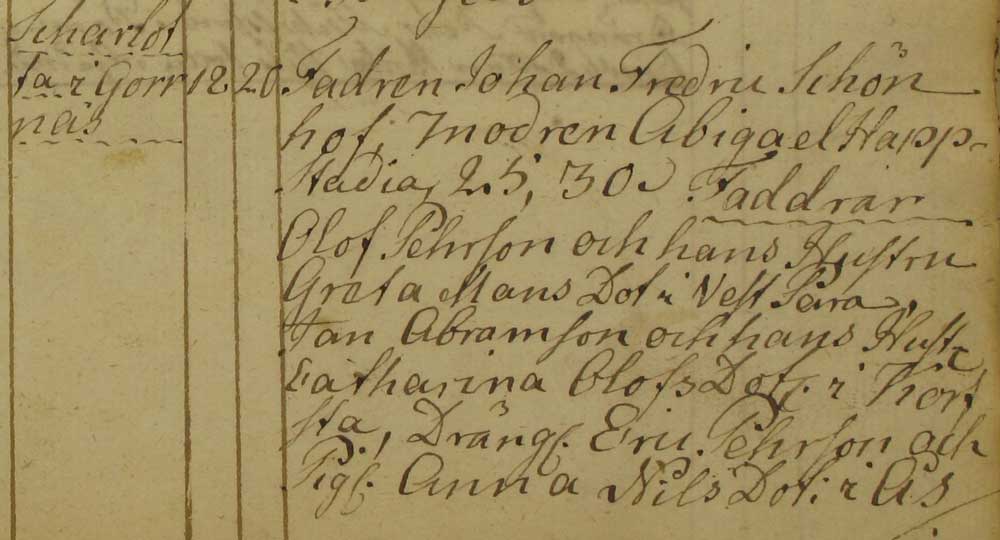 Scharlot
ta i Gorr
näs
12 20
Fadren Johan Fredric Schön
hof, modren Abigael Happ-
stadia, 25, 30. Faddrar
Olof Pehrson och hans Hustru
Greta Mans Dot. i Vest Para,
Jan Abramson och hans Hustr
Catharina Olofs Dot. i Kort
sta, Dräng. Eric Pehrson och
Pig. Anna Nils Dot. i Ås